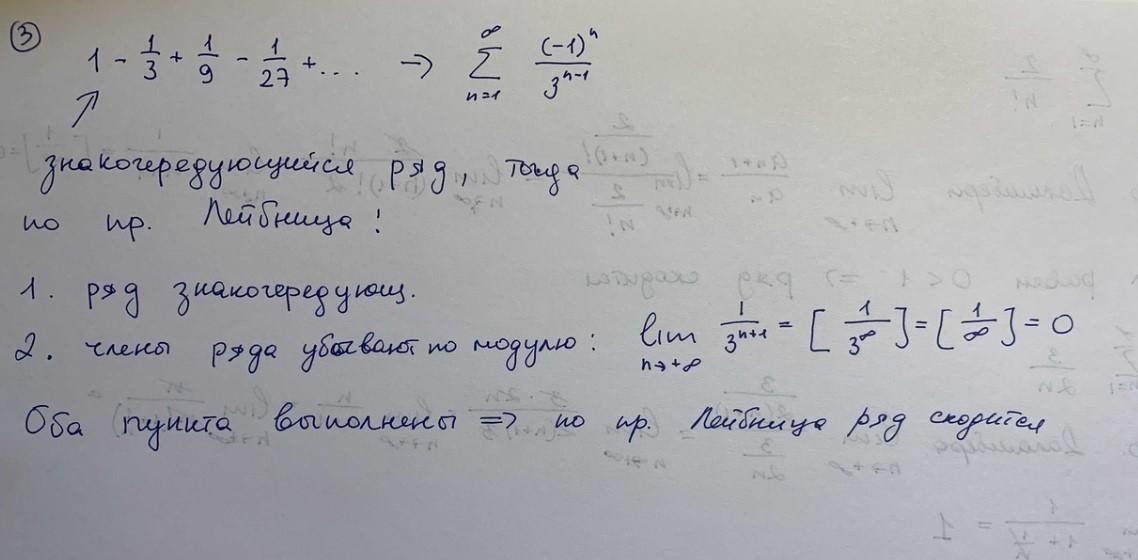 ③
1 - 1/3 + 1/9 - 1/27 + ... → ∑_{n=1}^{∞} (-1)^n / 3^{n-1}
знакочередующийся ряд, тогда
по пр. Лейбница!
1. ряд знакочередующ.
2. члены ряда убывают по модулю: lim_{n→+∞} 1/3^{n+1} = [1/3^∞] = [1/∞] = 0
Оба пункта выполнены => по пр. Лейбница ряд сходится